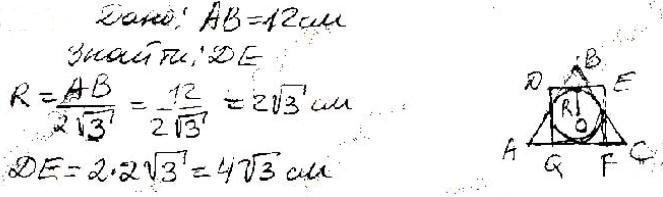 Дано: AB=12см
Знайти: DE
R = AB / 2√3 = 12 / 2√3 = 2√3 см
DE = 2·2√3 = 4√3 см
B
D E
R
O
A Q F C